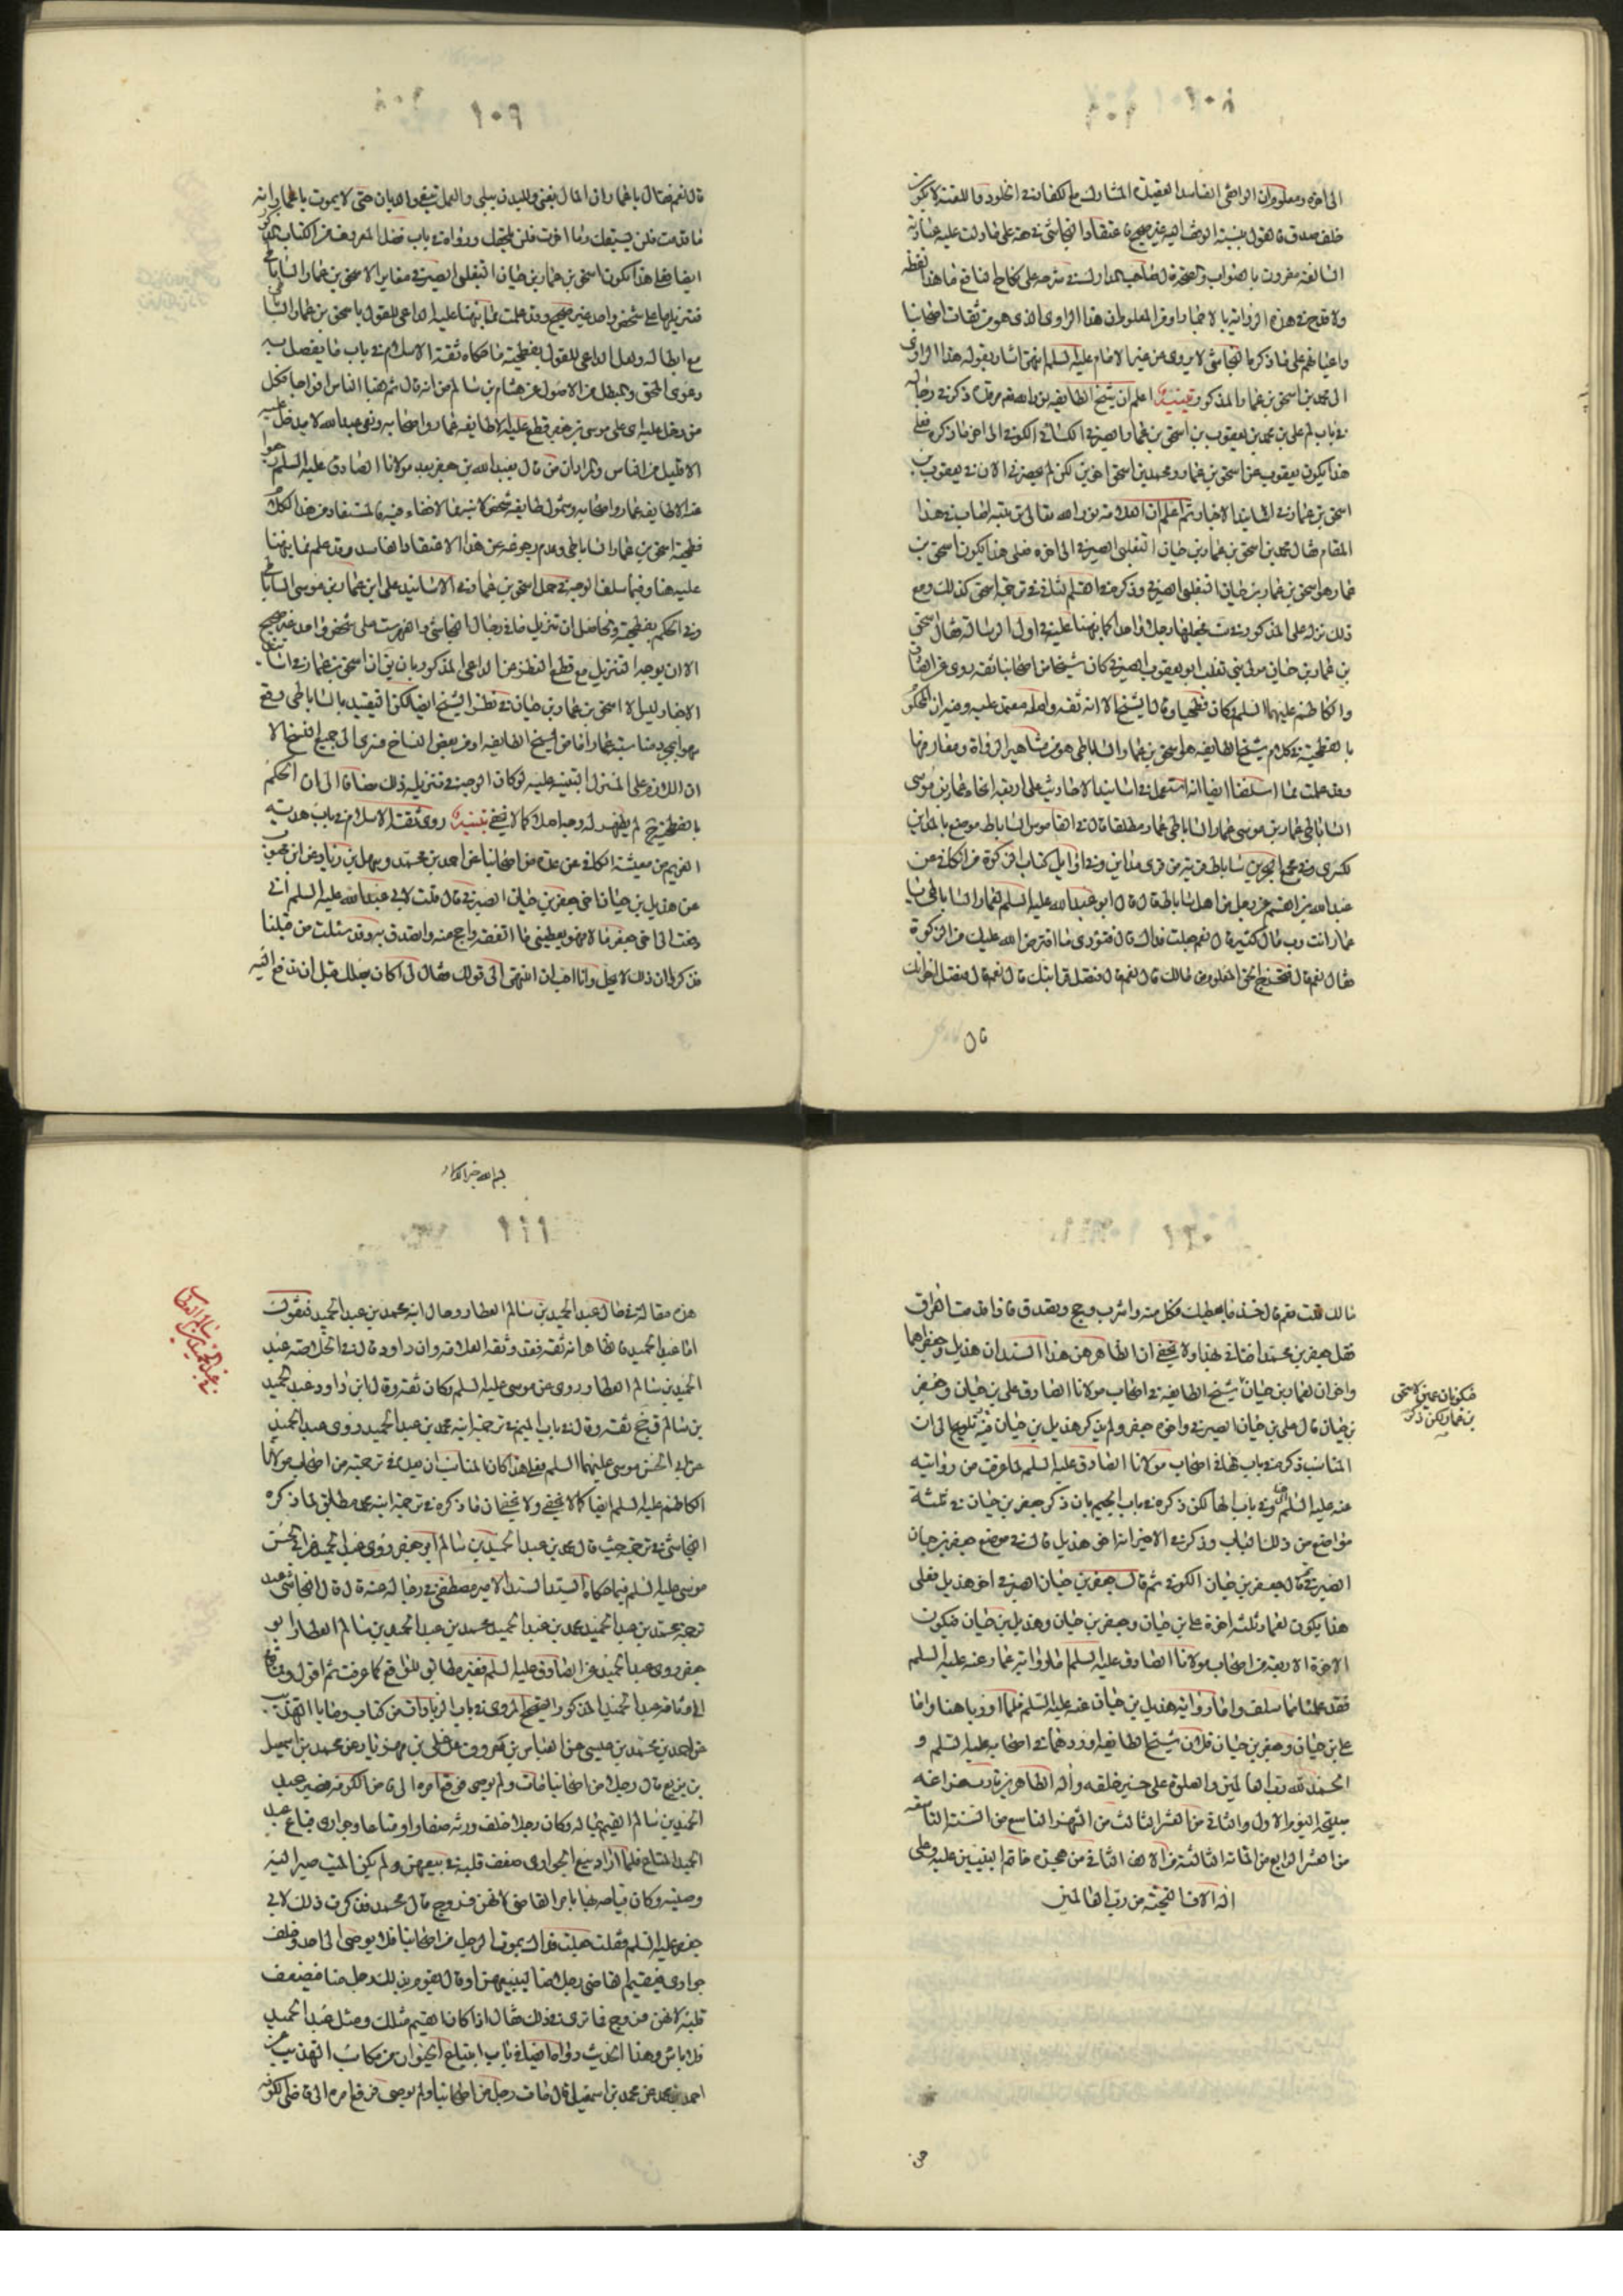 ١٠٨
الى اخره ومعلوم ان الواقفى الفاسد العقيدة المشارك مع الكفار فى الخلود واللعنة لا يكون
خلف صدق فالقول بالنسبة اليه غير صحيح فاعتقاد النجاشى فى حقه على ما دلت عليه عبارته
السالفة مقرون بالصواب والصحة قال صاحب المدارك فى شرحه على المختصر النافع ما هذا لفظه
ولا قدح فى هذه الرواية بالاضمار اذ من المعلوم ان هذا الراوى الذى هو من ثقات اصحابنا
واعيانهم على ما ذكره النجاشى لا يروى عن غير الامام عليه السلم انتهى اشار بقوله هذا الراوى
الى محمد بن اسحق بن عمار المذكور تنبيه اعلم ان شيخ الطايفه نور الله مرقده ذكر فى رجاله
فى باب لم على بن محمد بن يعقوب بن اسحق بن عمار الصيرفى الكسائى الكوفى الى اخر ما ذكره فعلى
هذا يكون يعقوب بن اسحق بن عمار ومحمد بن اسحق اخوين لكن لم يحضرنى الان يعقوب بن
اسحق بن عمار فى اسانيد الاخبار ثم اعلم ان العلامه نور الله تعالى مرقده اصاب فى هذا
المقام فقال محمد بن اسحق بن عمار بن حيان التغلبى الصيرفى الى اخره فعلى هذا يكون اسحق بن
عمار هو اسحق بن عمار بن حيان التغلبى الصيرفى وذكر فى ترجمة اسحق كذلك ومع
ذلك نزله على المذكور فى ست فجعلهما رجلا واحدا كما نبهنا عليه فى اول الرساله فقال اسحق
بن عمار بن حيان مولى بنى تغلب ابو يعقوب الصيرفى كان شيخا من اصحابنا ثقه روى عن الصادق
والكاظم عليهما السلم وكان فطحيا قال الشيخ الا انه ثقه واصله معتمد عليه وفيه ان المحكوم
بالفطحية فى كلام شيخ الطايفه هو اسحق بن عمار الساباطى هو من مشاهير الرواة ومعارفها
وقد علمت مما اسلفنا ايضا انه استعمل فى اسانيد الاحاديث على اربعة انحاء عمار بن موسى
الساباطى عمار بن موسى عمار الساباطى عمار مطلقا قال فى القاموس الساباط موضع بالمداين
لكسرى وفى مجمع البحرين ساباط قرية من قرى مداين وفى اوايل كتاب الزكوة من الكافى عن
عبد الله بن القسم عن رجل من اهل ساباط قال قال ابو عبد الله عليه السلم لعمار الساباطى يا
عمار انت رب مال كثير قال نعم جعلت فداك قال فتؤدى ما افترض الله عليك من الزكوة
فقال نعم قال فتخرج الحق المعلوم من مالك قال نعم قال فتصل قرابتك قال نعم قال فتصل اخوانك
قال
١٠٩
قال نعم فقال يا عمار ان المال يفنى والبدن يبلى والعمل يبقى والديان حى لا يموت يا عمار انه
ما قدمت فلن يسبقك وما اخرت فلن يلحقك ورواه فى باب فضل المعروف من الكتاب المذكور
ايضا فعلى هذا يكون اسحق بن عمار بن حيان التغلبى الصيرفى مغاير الاسحق بن عمار الساباطى
فتنزيلهما على شخص واحد غير صحيح وقد علمت مما نبهنا عليه الداعى للقول باسحق بن عمار الساباطى
مع ابطاله ولعل الداعى للقول بفطحيته ما حكاه ثقة الاسلام فى باب ما يفصل به
دعوى المحق والمبطل من الاصول عن هشام بن سالم من انه قال ثم لقينا الناس افواجا فكل
من دخل عليه اى على موسى بن جعفر قطع عليه الا طايفه عمار واصحابه وبقى عبد الله لا يدخل عليه
الا قليل من الناس والمراد ان من قال بعبد الله بن جعفر بعد مولانا الصادق عليه السلم رجعوا
عنه الا طايفه عمار واصحابه وشمول طايفه شخص لابنه مما لا خفاء فيه فالمستفاد من هذا الكلام
فطحية اسحق بن عمار الساباطى وعدم رجوعه عن هذا الاعتقاد الفاسد وقد علم مما نبهنا
عليه هنا وفيما سلف الوجه فى حمل اسحق بن عمار فى الاسانيد على ابن عمار بن موسى الساباطى
وفى الحكم بفطحيته والحاصل ان تنزيل ما فى رجال النجاشى والفهرست على شخص واحد غير صحيح
الا ان يوجه التنزيل مع قطع النظر عن الداعى المذكور بان يق ان اسحق بن عمار فى اسانيد
الاخبار ليس الا اسحق بن عمار بن حيان فى نظر الشيخ ايضا لكن التقييد بالساباطى وقع
سهوا بمجرد مناسبة عمار اما من الشيخ الطايفه او من بعض النساخ فسرى الى جميع النسخ الا
ان اللازم على المنزل التنبيه عليه لو كان الوجه فى تنزيله ذلك مضافا الى ان الحكم
بالفطحية ح لم يظهر له وجه اصلا كما لا يخفى تنبيه روى ثقة الاسلام فى باب هدية
الغريم من معيشة الكافى عن عدة من اصحابنا عن احمد بن محمد وسهل بن زياد عن ابن محبوب
عن هذيل بن حيان اخى جعفر بن حيان الصيرفى قال قلت لابى عبد الله عليه السلم انى
دفعت الى اخى جعفر مالا فهو يعطينى ما انفقه واحج منه واتصدق به وقد سئلت من قبلنا
فذكروا ان ذلك لا يحل وانا احب ان انتهى الى قولك فقال لى اكان يصلك قبل ان تدفع اليه
١١٠
مالك قلت نعم قال خذ ما يعطيك فكل منه واشرب وحج وتصدق فاذا قدمت العراق
فقل جعفر بن محمد افتانى بهذا ولا يخفى ان الظاهر من هذا السند ان هذيل وجعفر هما
واخوان لعمار بن حيان شيخ الطايفه فى اصحاب مولانا الصادق على بن حيان وجعفر
بن حيان قال على بن حيان الصيرفى واخوه جعفر ولم يذكر هذيل بن حيان فيه تلويح الى ان
المناسب ذكره فى باب الهاء فى اصحاب مولانا الصادق عليه السلم لما عرفت من روايته
عنه عليه السلم وفى باب الهاء لكن ذكره فى باب الجيم بان ذكر جعفر بن حيان فى ثلثة
مواضع من ذلك الباب وذكر فى الاخير انه اخى هذيل قال فى موضع جعفر بن حيان
الصيرفى ثم قال جعفر بن حيان الكوفى ثم قال جعفر بن حيان الصيرفى اخو هذيل فعلى
هذا يكون لعمار ثلثه اخوة على بن حيان وجعفر بن حيان وهذيل بن حيان فيكون
الاخوة الاربعة من اصحاب مولانا الصادق عليه السلم اما رواية عمار عنه عليه السلم
فقد علمنا مما سلف واما رواية هذيل بن حيان عنه عليه السلم فلما اوردناه هنا واما
على بن حيان وجعفر بن حيان فلان شيخ الطايفه اوردهما فى اصحابه عليه السلم و
الحمد لله رب العالمين والصلوة على خير خلقه واله الطاهرين
من العشر الثالث من الشهر التاسع من السنة التاسعه
من العشر الرابع من المائة الثالثة من الالف الثانى من هجرة خاتم النبيين عليه وعلى
اله الاف التحية من رب العالمين
فيكونان عمين لاسحق
بن عمار لكن ذكر
١١١
هذه مقالة فى حال عبد الحميد بن سالم العطار وحال ابنه محمد بن عبد الحميد فنقول
اما عبد الحميد فالظاهر انه ثقه فقد وثقه العلامه وابن داود قال فى الخلاصه عبد
الحميد بن سالم العطار روى عن موسى عليه السلم وكان ثقه وقال ابن داود عبد الحميد
بن سالم ق جخ ثقه وقال فى باب الميم فى ترجمة ابنه محمد بن عبد الحميد روى عبد الحميد
عن ابى الحسن موسى عليهما السلم فعلى هذا كان المناسب ان يعد فى ترجمته من اصحاب مولانا
الكاظم عليه السلم ايضا كما لا يخفى ولا يخفى ان ما ذكره فى ترجمة ابنه محمد مطابق لما ذكره
النجاشى فى ترجمته حيث قال محمد بن عبد الحميد بن سالم ابو جعفر روى عبد الحميد عن ابى الحسن
موسى عليه السلم فيما حكاه السيد السند الامير مصطفى فى رجاله عنه قال قال النجاشى عند
ترجمة محمد بن عبد الحميد محمد بن عبد الحميد محمد بن عبد الحميد بن سالم العطار ابو
جعفر روى عبد الحميد عن الصادق عليه السلم فغير مطابق للواقع كما عرفت ثم اقول
وثاقة عبد الحميد المذكور الصحيح المروى فى باب الزيادات من كتاب وصايا التهذيب
عن احمد بن محمد بن عيسى عن العباس بن معروف عن على بن مهزيار عن محمد بن اسمعيل
بن بزيع قال رجل من اصحابنا مات ولم يوص فرفع امره الى قاضى الكوفه فصير عبد
الحميد بن سالم القيم بماله وكان رجلا خلف ورثه صغارا ومتاعا وجوارى فباع عبد
الحميد المتاع فلما اراد بيع الجوارى ضعف قلبه فى بيعهن ولم يكن الميت صير اليه
وصيته وكان قيامه بها بامر القاضى لانهن فروج قال محمد فذكرت ذلك لابى
جعفر عليه السلم فقلت جعلت فداك يموت الرجل من اصحابنا فلا يوصى الى احد وخلف
جوارى فيقيم القاضى رجلا منا ليبيعهن او قال يقوم بذلك رجل منا فيضعف
قلبه لانهن فروج فما ترى فى ذلك فقال اذا كان القيم مثلك ومثل عبد الحميد
فلا باس وهذا الحديث رواه ايضا فى باب ابتياع الحيوان من مكاسب التهذيب عن
احمد بن محمد عن محمد بن اسمعيل قال مات رجل من اصحابنا ولم يوص فرفع امره الى قاضى الكوفه